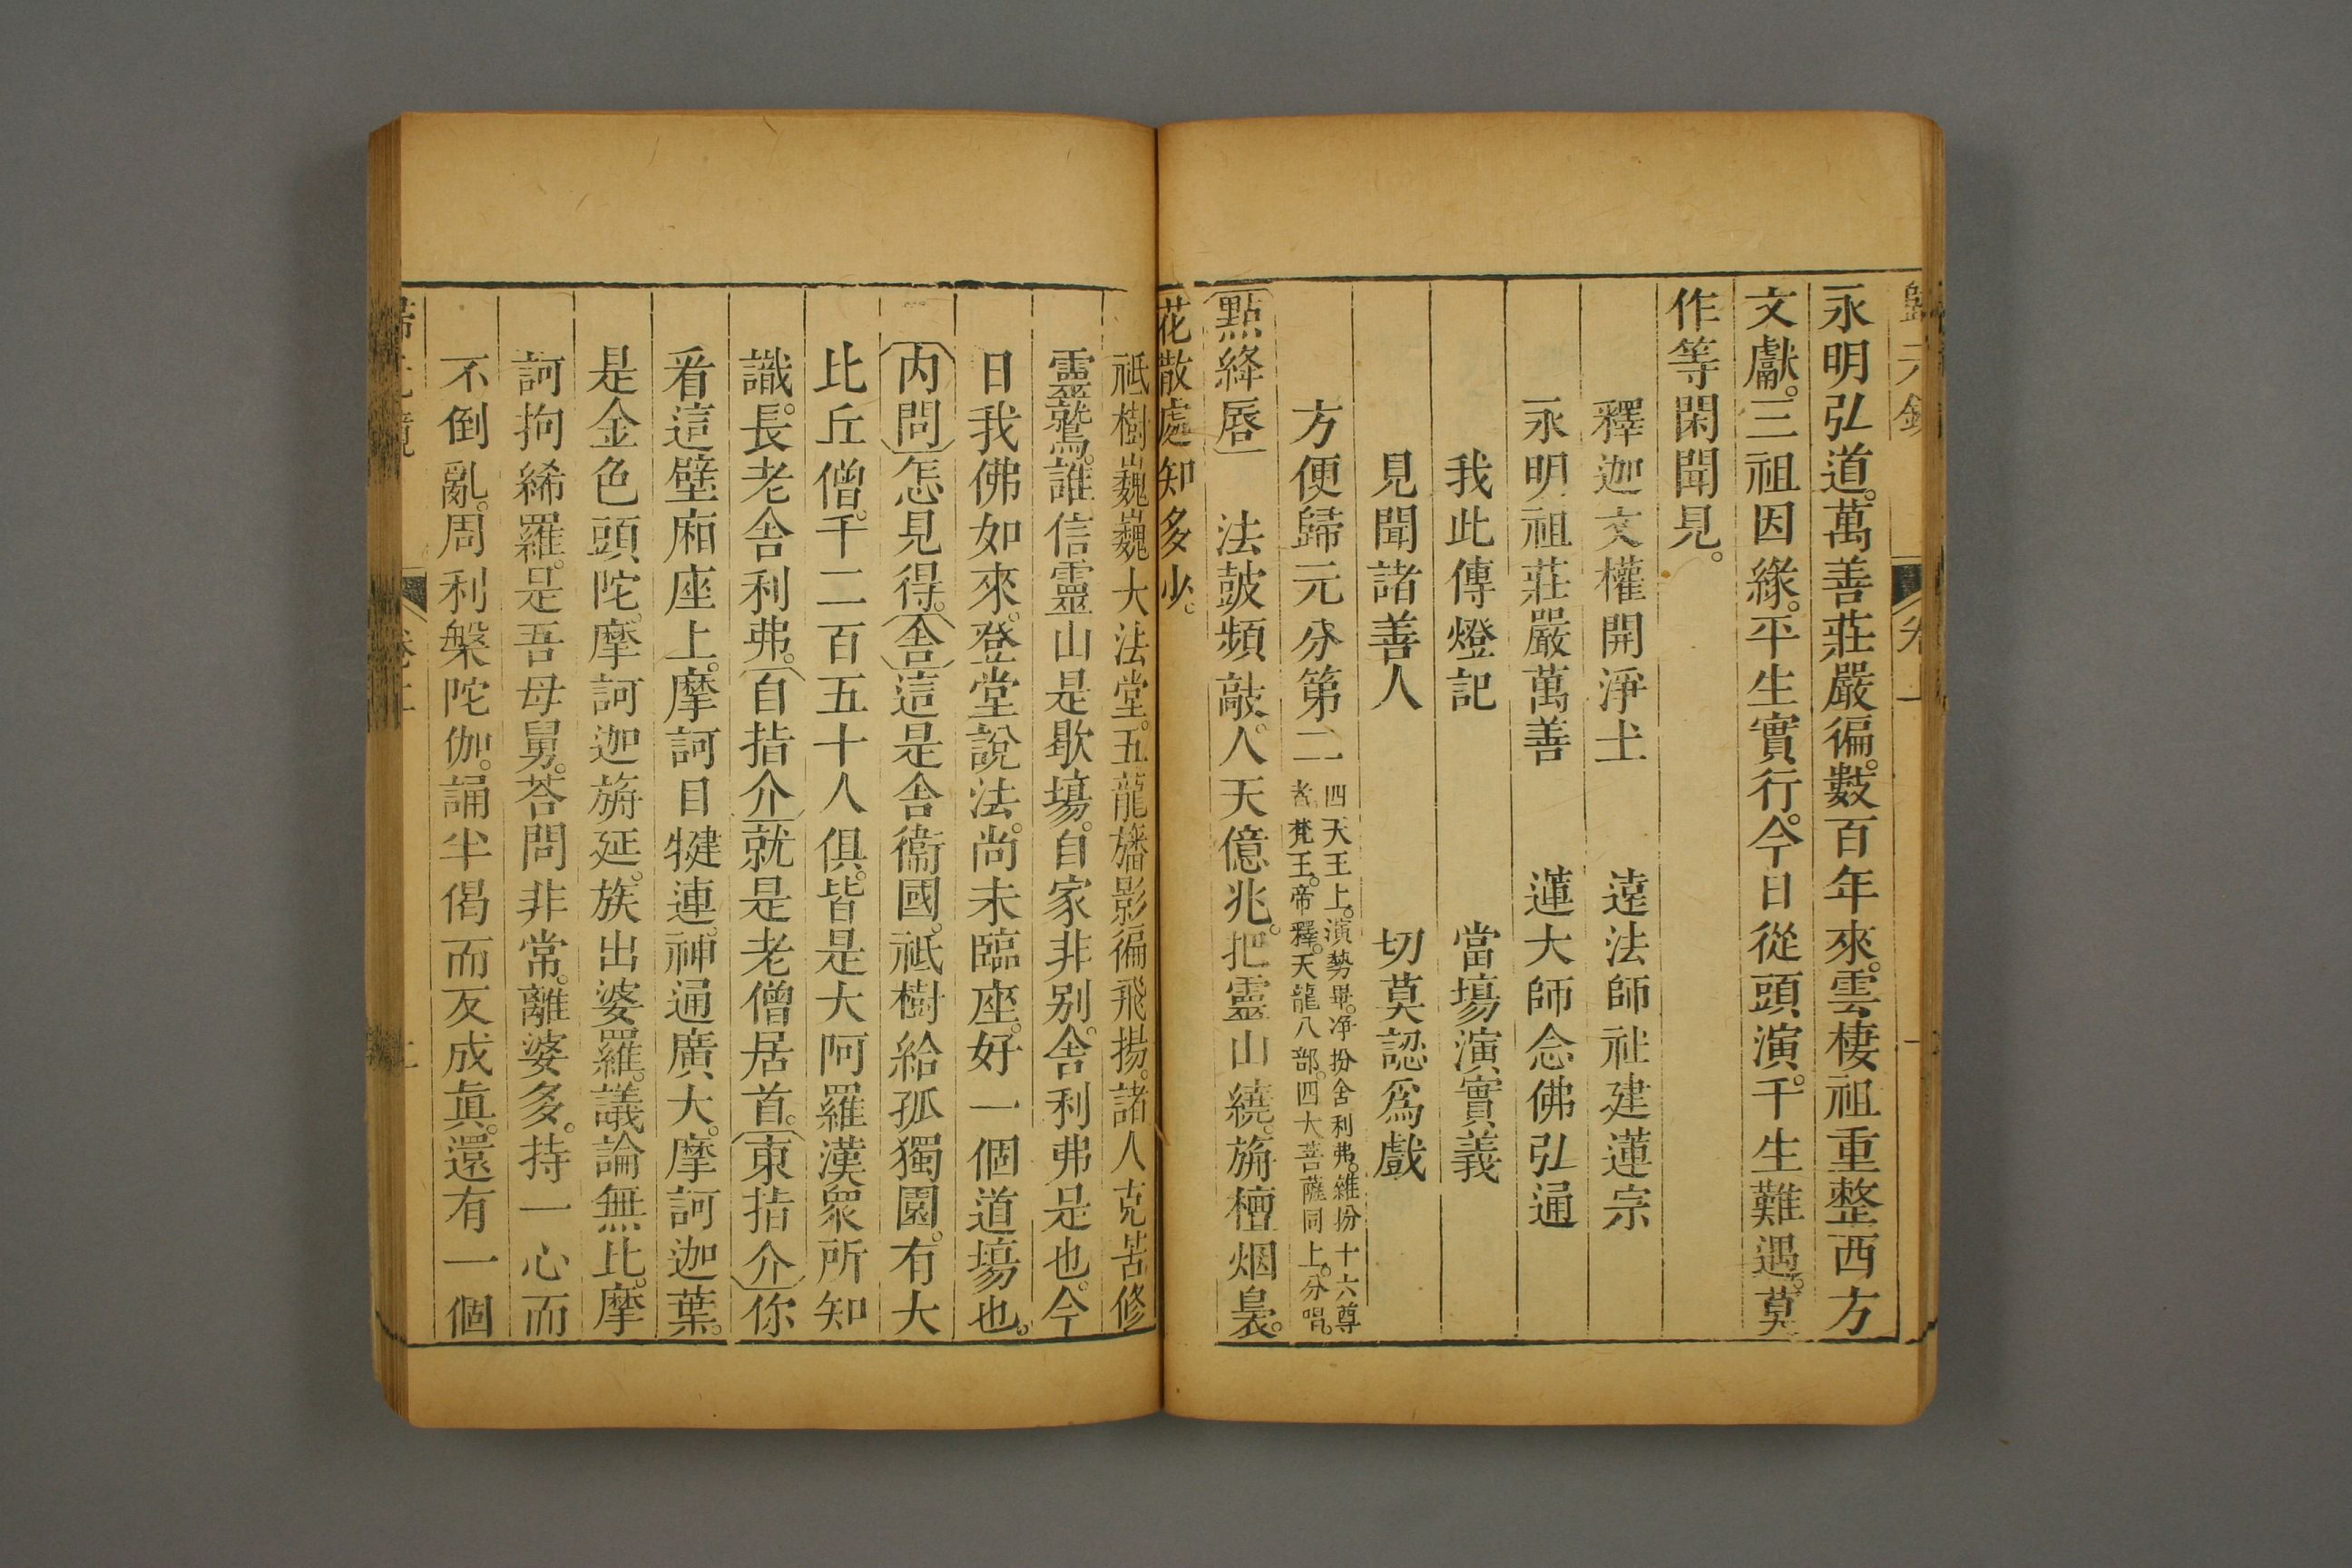 永明弘道。萬善莊嚴徧。數百年來。雲棲祖重整西方
文獻。三祖因緣。平生實行。今日從頭演。千生難遇。莫
作等閑聞見。
釋迦文權開淨土　遠法師社建蓮宗
永明祖莊嚴萬善　蓮大師念佛弘通
我此傳燈記　當塲演實義
見聞諸善人　切莫認爲戲
方便歸元分第二 四天王上。演勢畢。净扮舍利弗。雜扮十六尊者。梵王。帝釋。天龍八部。四大菩薩同上。分唱。
點絳唇　法皷頻敲。人天億兆。把靈山繞。旃檀烟裊。
花散處知多少。
祗樹巍巍大法堂。五龍旛影徧飛揚。諸人克苦修
靈鷲。誰信靈山是歇塲。自家非别。舍利弗是也。今
日我佛如來。登堂說法。尚未臨座。好一個道塲也。
内問怎見得。舍這是舍衞國。祗樹給孤獨園。有大
比丘僧。千二百五十人俱。皆是大阿羅漢衆所知
識。長老舍利弗。自指介就是老僧居首。東指介你
看這壁廂座上。摩訶目犍連。神通廣大。摩訶迦葉。
是金色頭陀。摩訶迦旃延。族出婆羅。議論無比。摩
訶拘絺羅。是吾母舅。荅問非常。離婆多。持一心而
不倒亂。周利槃陀伽。誦半偈而反成眞。還有一個